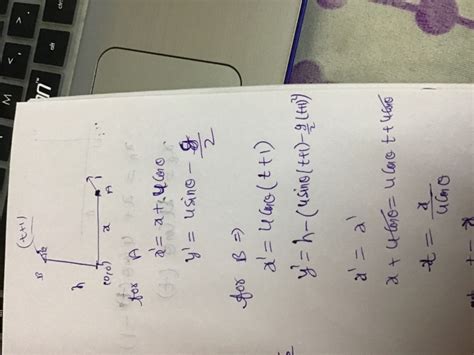 (t+1)
B
h
(0,0)
x
A
for A
x' = x + u cosθ
y' = u sinθ - g/2
for B ⇒
x' = u cosθ (t+1)
y' = h - (u sinθ (t+1) - g/2 (t+1)²)
x' = x'
x + u cosθ = u cosθ t + u cosθ
t = x / u cosθ